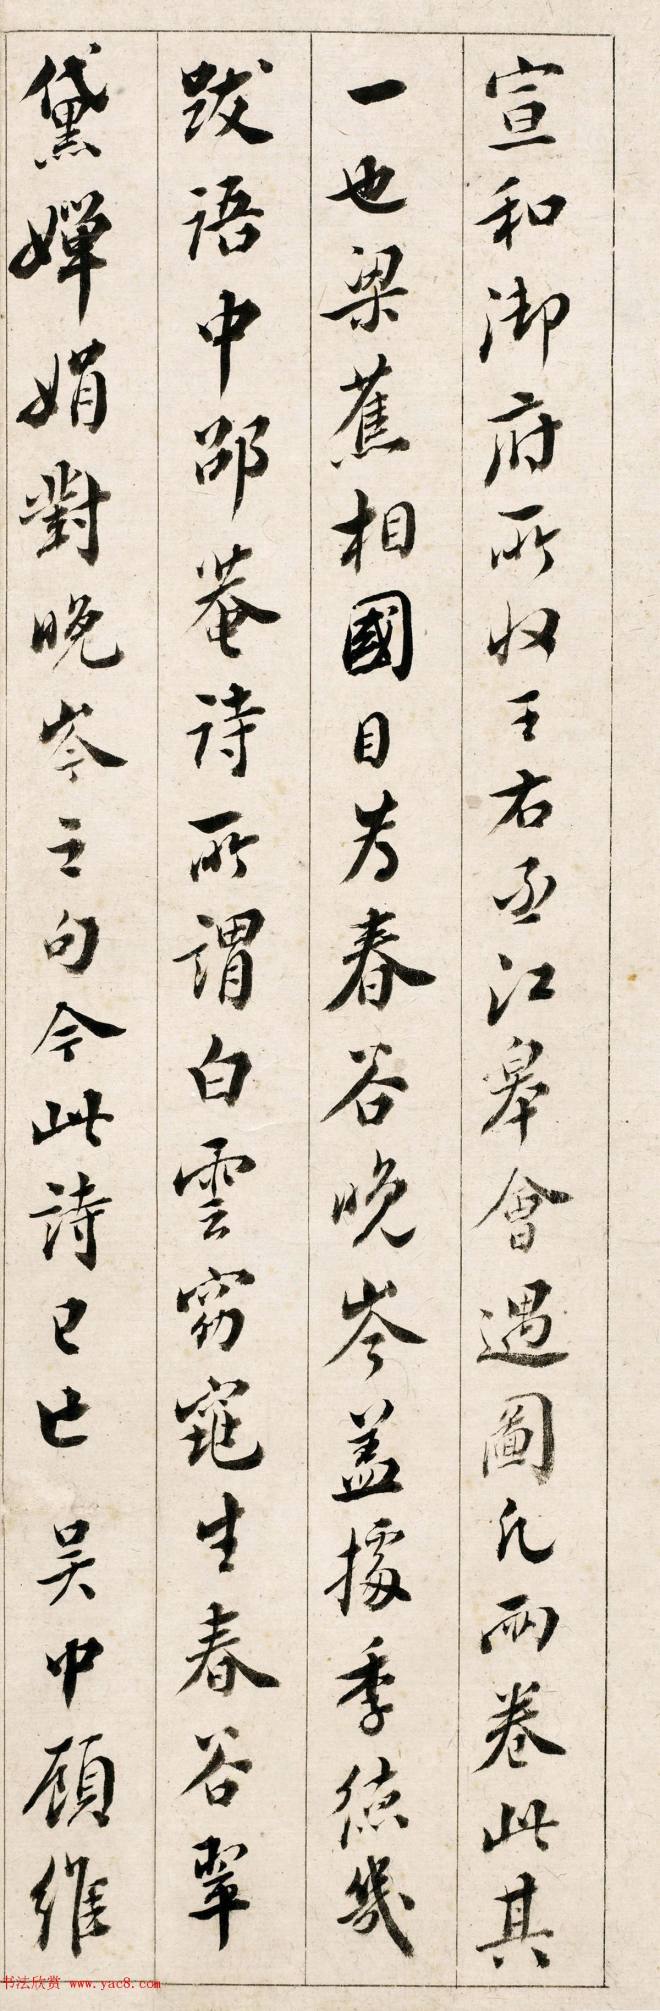 宣和御府所收王右丞江皋會遇圖凡兩卷此其
一也梁蕉相國目為春谷晚岑蓋據季德幾
跋語中邵菴詩所謂白雲窈窕生春谷翠
黛嬋娟對晚岑之句今此詩已亡吳中顧維
书法欣赏 www.yac8.com